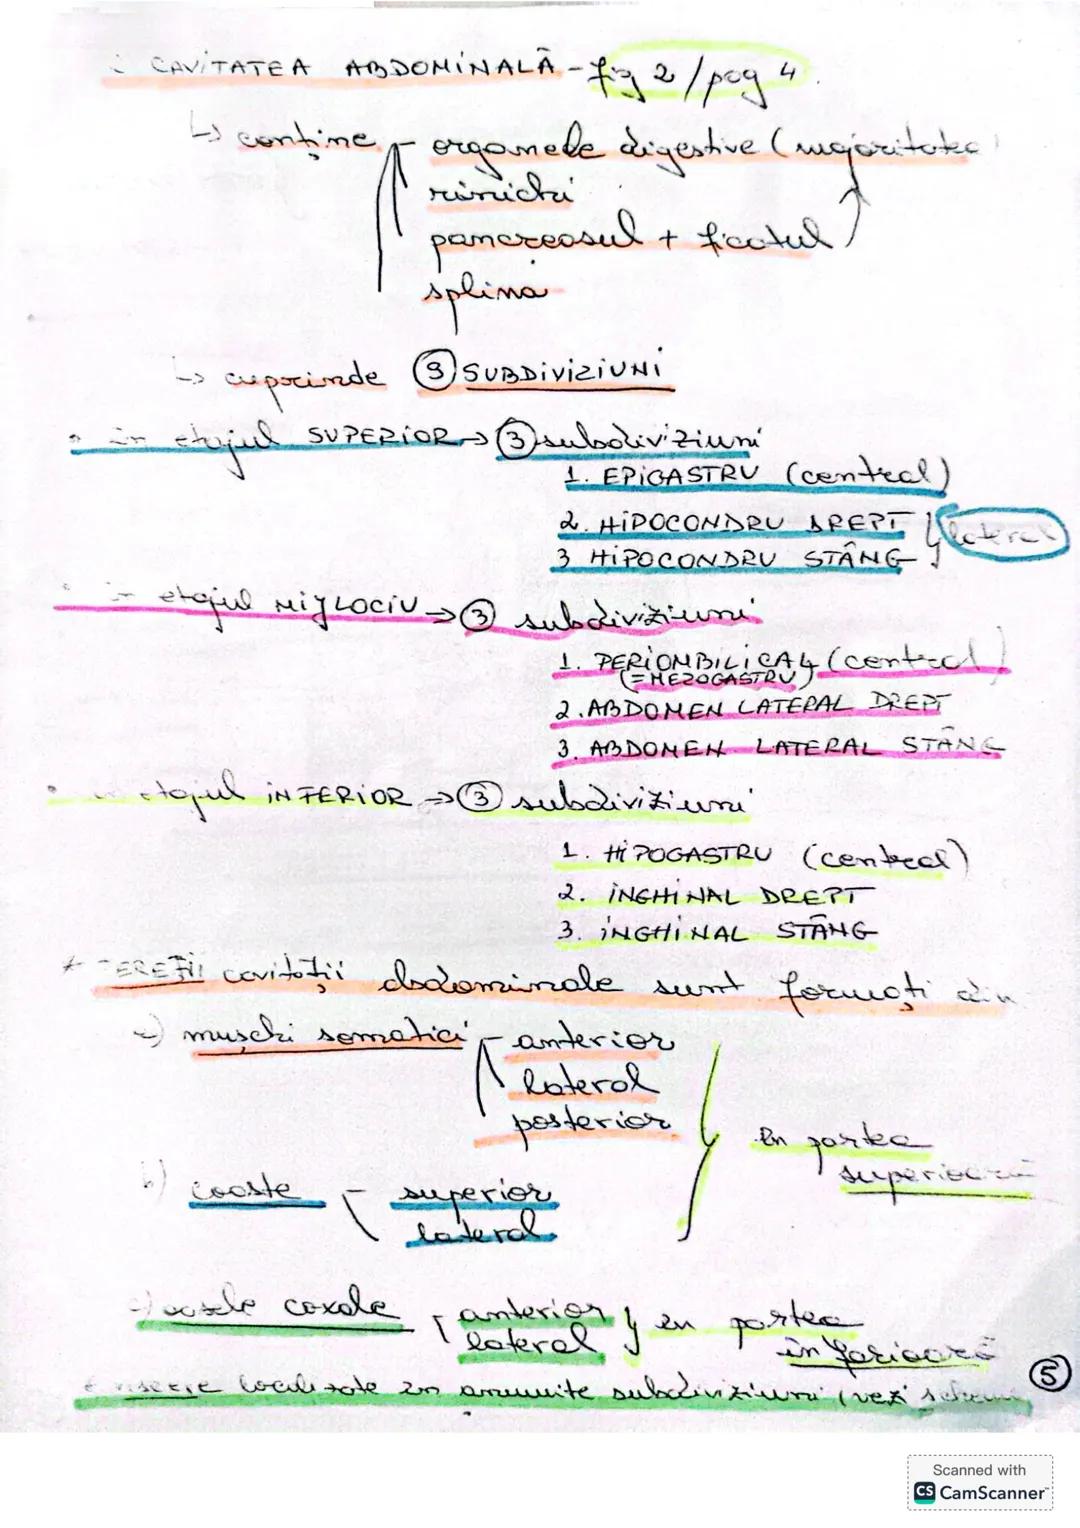 CAVITATEA ABDOMINALĂ - fig 2 / pag 4.
↳ conține - organele digestive (majoritatea)
rinichi
pancreasul + ficatul
splina
↳ cuprinde 9 SUBDIVIZIUNI
• în etajul SUPERIOR → 3 subdiviziuni
1. EPIGASTRU (central)
2. HIPOCONDRU DREPT } lateral
3 HIPOCONDRU STÂNG
• în etajul MIJLOCIU → 3 subdiviziuni
1. PERIOMBILICAL (central)
(= MEZOGASTRU)
2. ABDOMEN LATERAL DREPT
3. ABDOMEN LATERAL STÂNG
• etajul INFERIOR → 3 subdiviziuni
1. HIPOGASTRU (central)
2. INGHINAL DREPT
3. INGHINAL STÂNG
* PEREȚII cavității abdominale sunt formați din
a) mușchi somatici - anterior
lateral
posterior
în partea superioară
b) coaste - superior
lateral
c) oasele coxale - anterior
lateral } în partea inferioară
* viscere localizate în anumite subdiviziuni (vezi schema
5
Scanned with
CS CamScanner